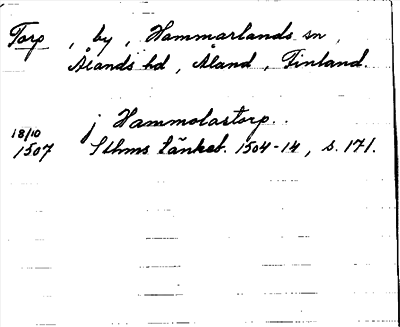 Torp, by, Hammarlands sn,
Ålands hd, Åland, Finland.
18/10
1507
j Hammolastorp..
Sthms tänkeb. 1504-14, s. 171.